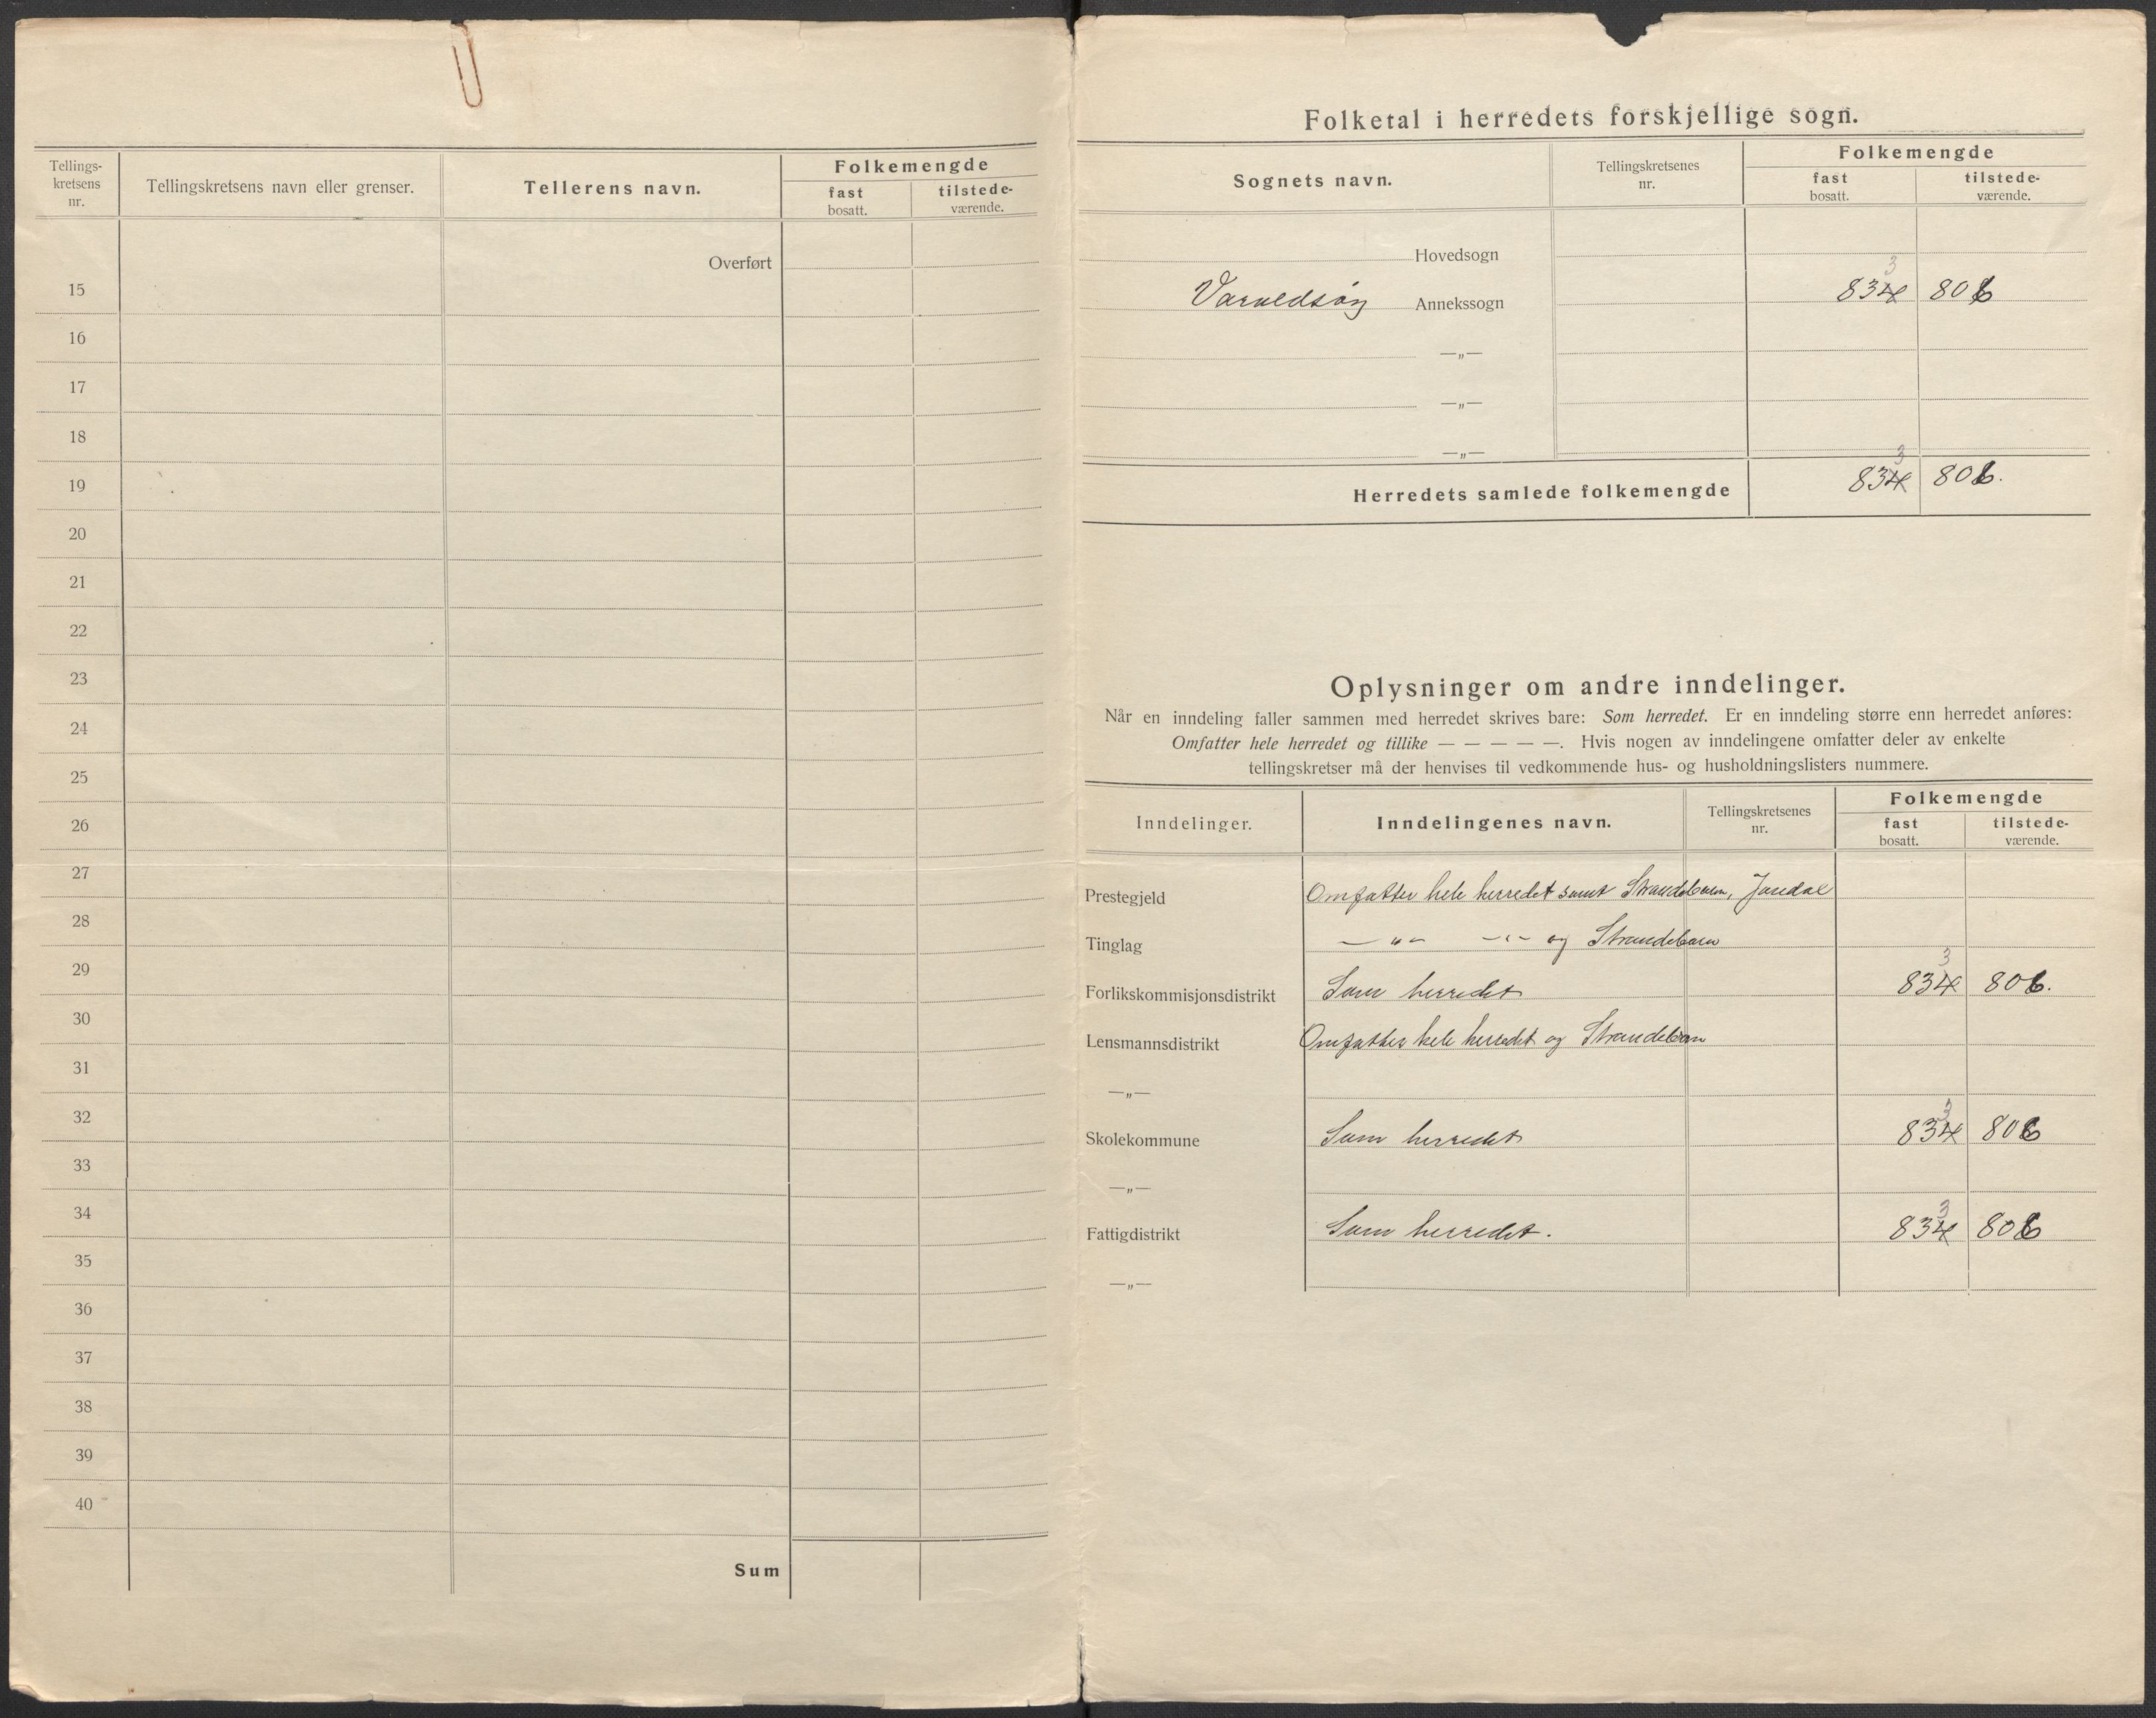 Tellings-
kretsens
nr.
Tellingskretsens navn eller grenser.
Tellerens navn.
Folkemengde
fast
bosatt.
tilstede-
værende.
Overført
15
16
17
18
19
20
21
22
23
24
25
26
27
28
29
30
31
32
33
34
35
36
37
38
39
40
Sum
Folketal i herredets forskjellige sogn.
Sognets navn.
Tellingskretsenes
nr.
Folkemengde
fast
bosatt.
tilstede-
værende.
Hovedsogn
3
Varaldsøy Annekssogn 834 806
—„—
—„—
—„—
3
Herredets samlede folkemengde 834 806.
Oplysninger om andre inndelinger.
Når en inndeling faller sammen med herredet skrives bare: Som herredet. Er en inndeling større enn herredet anføres:
Omfatter hele herredet og tillike — — — — —. Hvis nogen av inndelingene omfatter deler av enkelte
tellingskretser må der henvises til vedkommende hus- og husholdningslisters nummere.
Inndelinger.
Inndelingenes navn.
Tellingskretsenes
nr.
Folkemengde
fast
bosatt.
tilstede-
værende.
Prestegjeld Omfatter hele herredet samt Strandebarm, Jondal
Tinglag — „ — — „ — og Strandebarm
3
Forlikskommisjonsdistrikt Som herredet 834 806.
Lensmannsdistrikt Omfatter hele herredet og Strandebarm
—„—
3
Skolekommune Som herredet 834 806
—„—
3
Fattigdistrikt Som herredet. 834 806
—„—